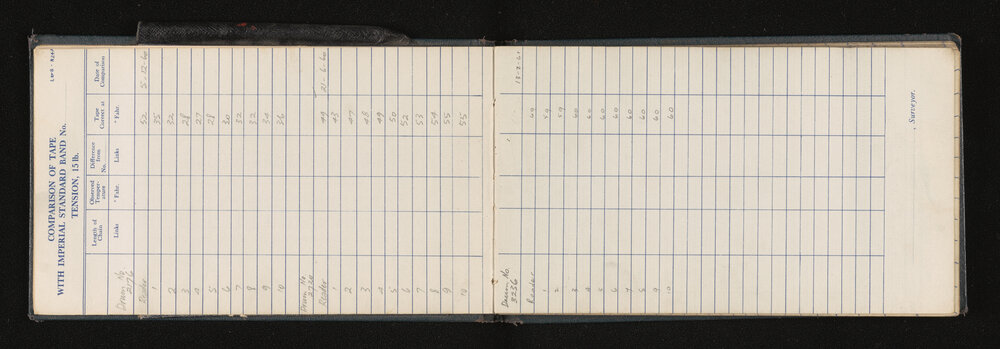 L & S. 8254
COMPARISON OF TAPE
WITH IMPERIAL STANDARD BAND No.
TENSION, 15 lb.
Length of Chain | Observed Temper-ature | Difference from No. | Tape Correct at | Date of Comparison
Links | ° Fahr. | Links | ° Fahr.
Drum No
2176
Reader 52 5-12-60
1 35
2 32
3 28
4 27
5 28
6 30
7 32
8 32
9 34
10 36
Drum No
2720
Reader 49 21-6-60
1 43
2 47
3 48
4 49
5 50
6 52
7 53
8 54
9 55
10 55
Drum No
3256 13-2-61
Reader 60
2 59
3 60
4 60
5 60
6 60
7 60
8 60
9 60
10 60
, Surveyor.